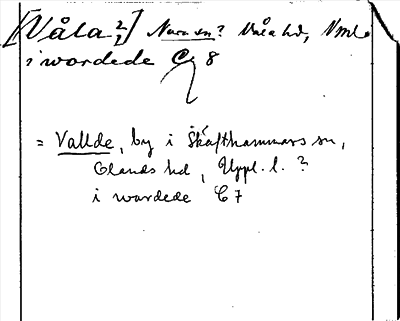 [Våla?,] Nora sn? Våla hd, Vml.
i wordede C 8
= Vallde, by i Skäfthammars sn,
Olands hd, Uppl. l. ?
i wordede C 7